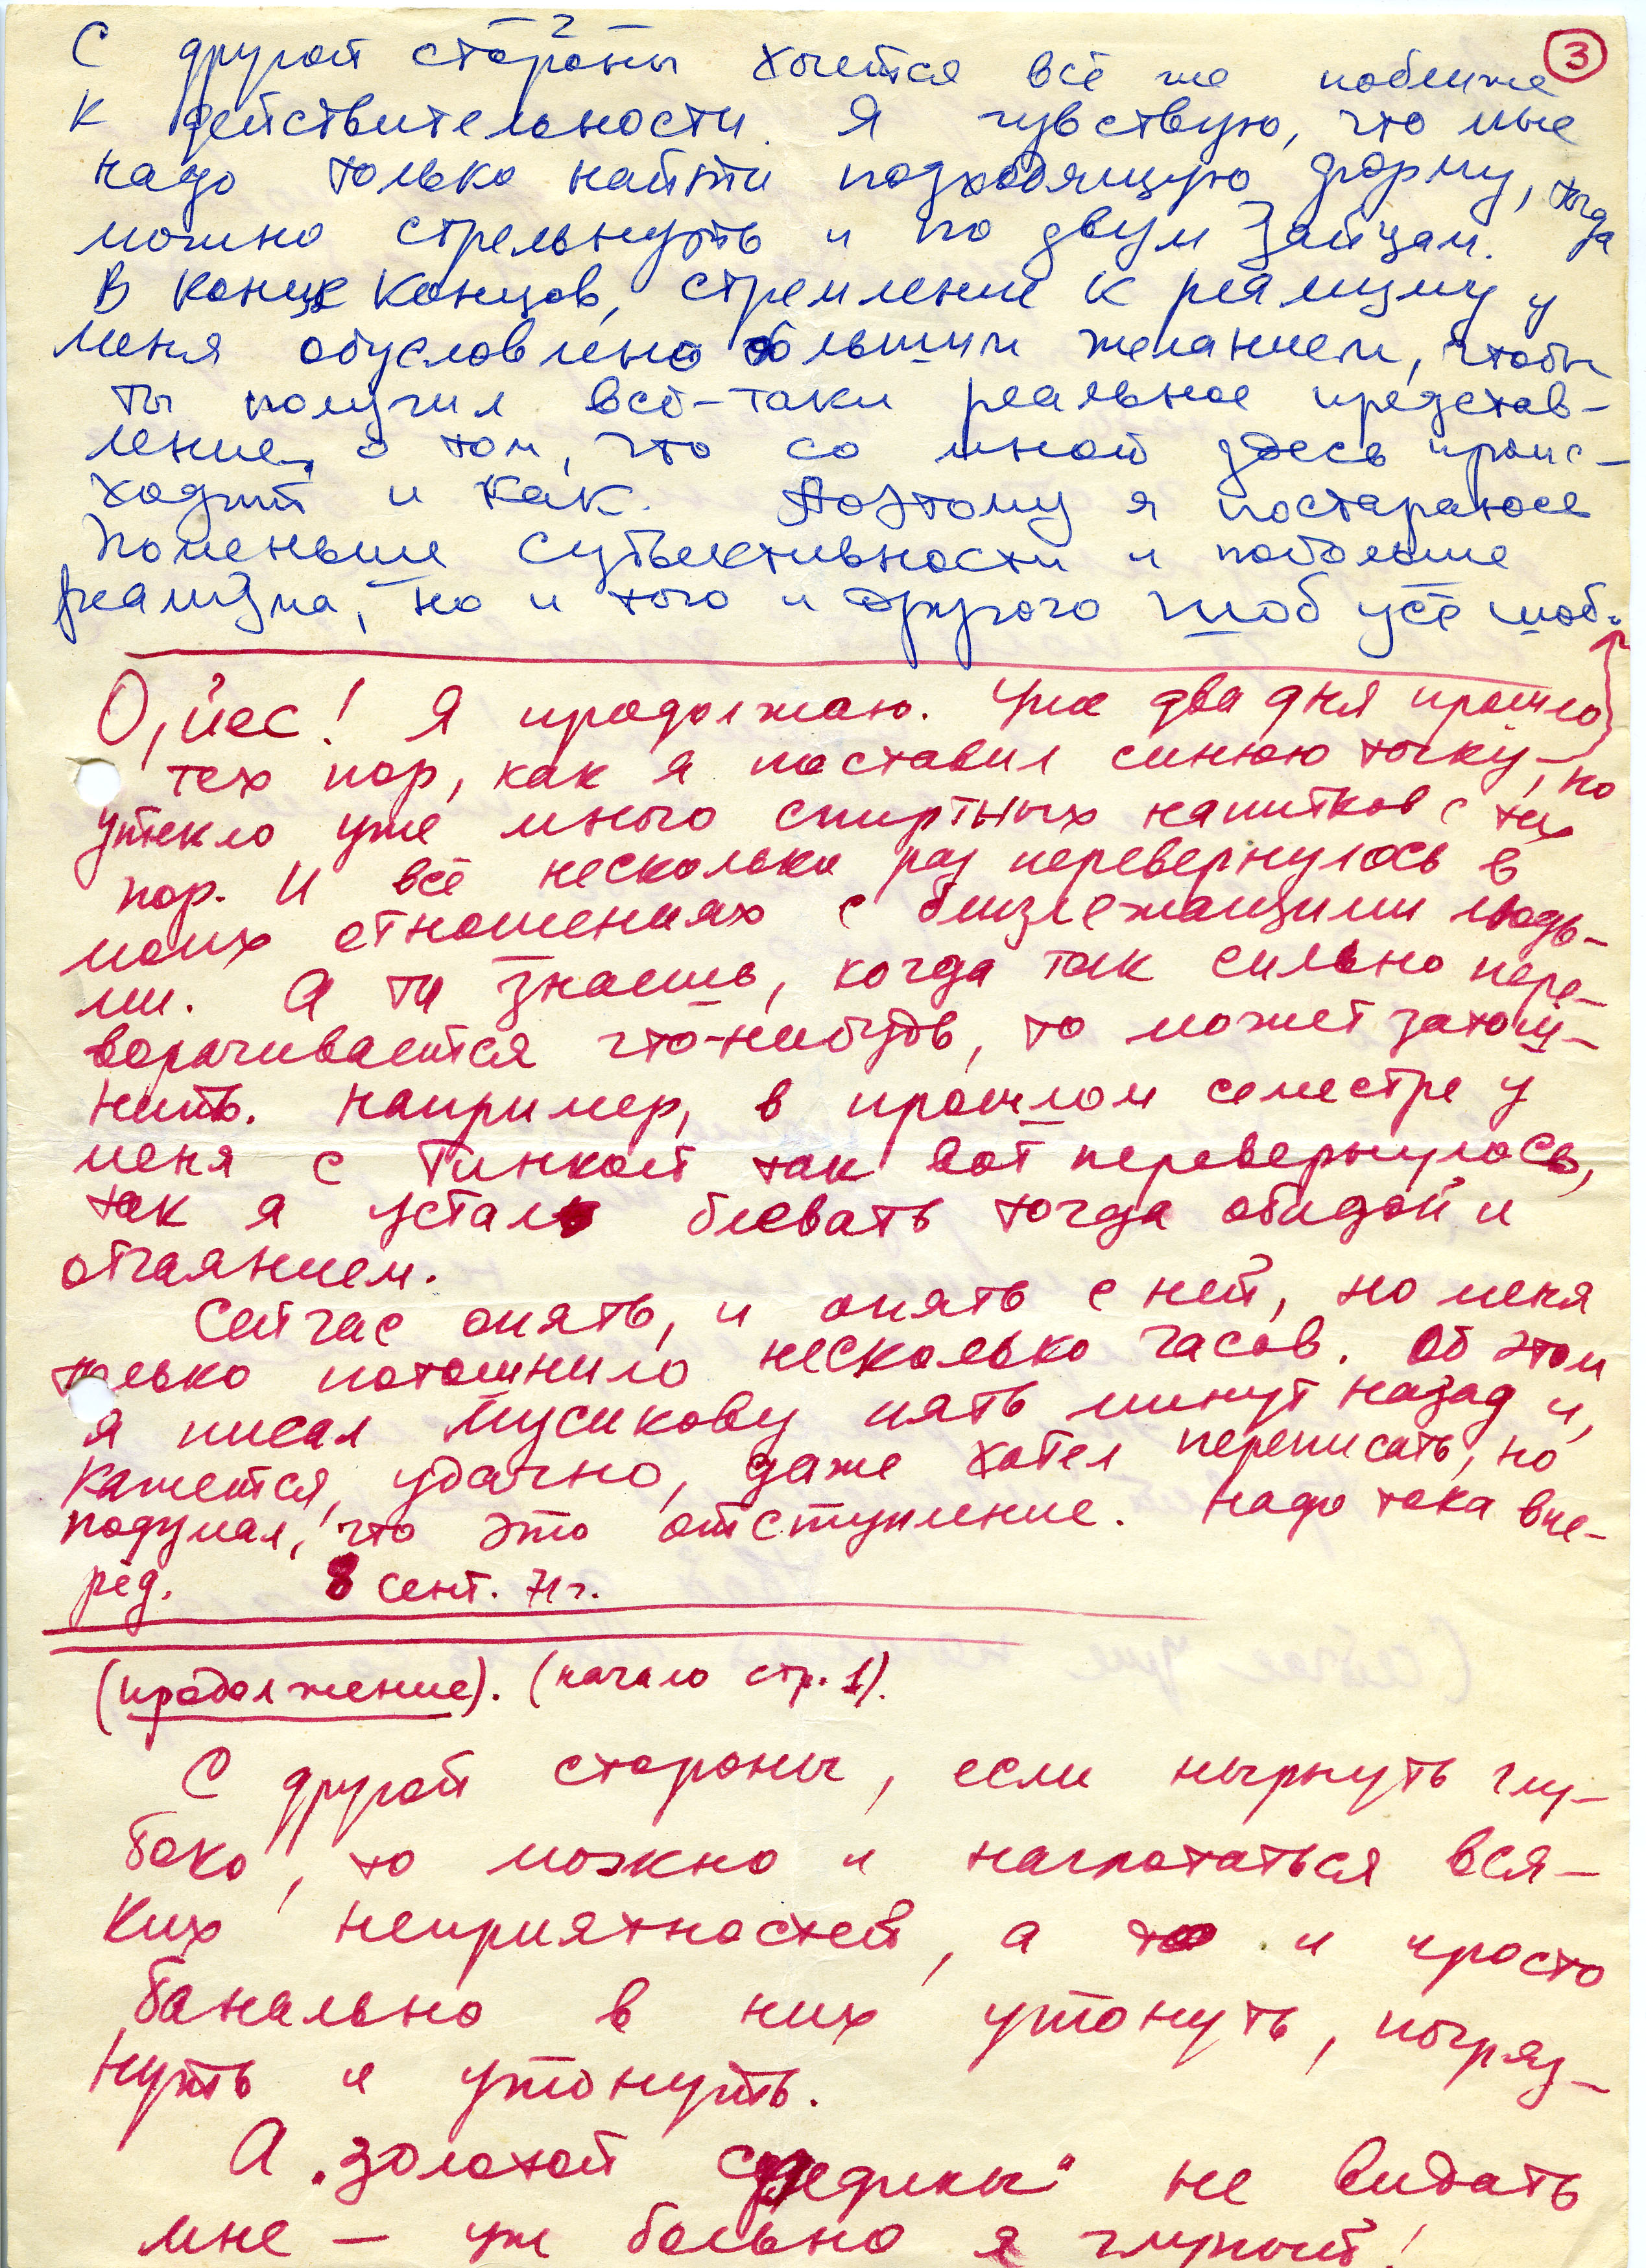 3
С другой стороны хочется всё же поближе
к действительности. Я чувствую, что мне
надо только найти подходящую форму, тогда
можно стрельнуть и по двум зайцам.
В конце концов, стремление к реализму у
меня обусловлено большим желанием, чтобы
ты получил всё-таки реальное представ-
ление о том, что со мной здесь проис-
ходит и как. Поэтому я постараюсь
поменьше субъективности и побольше
реализма, но и того и другого шоб усё шоб.
О, йес! Я продолжаю. Уже два дня прошло
с тех пор, как я поставил синюю точку, но
утекло уже много спиртных напитков с тех
пор. И всё несколько раз перевернулось в
моих отношениях с близлежащими людь-
ми. А ты знаешь, когда так сильно пере-
ворачивается что-нибудь, то может затош-
нить. Например, в прошлом семестре у
меня с Тинкой так вот перевернулось,
так я устал блевать тогда обидой и
отчаянием.
Сейчас опять, и опять с ней, но меня
только потошнило несколько часов. Об этом
я писал Мусикову пять минут назад и,
кажется, удачно, даже хотел переписать, но
подумал, что это отступление. Надо тока впе-
рёд. 8 сент. 71 г.
(продолжение). (начало стр. 1).
С другой стороны, если нырнуть глу-
боко, то можно и наглотаться вся-
ких неприятностей, а то и просто
банально в них утонуть, погряз-
нуть и утонуть.
А "золотой середины" не видать
мне — уж больно я глупый!